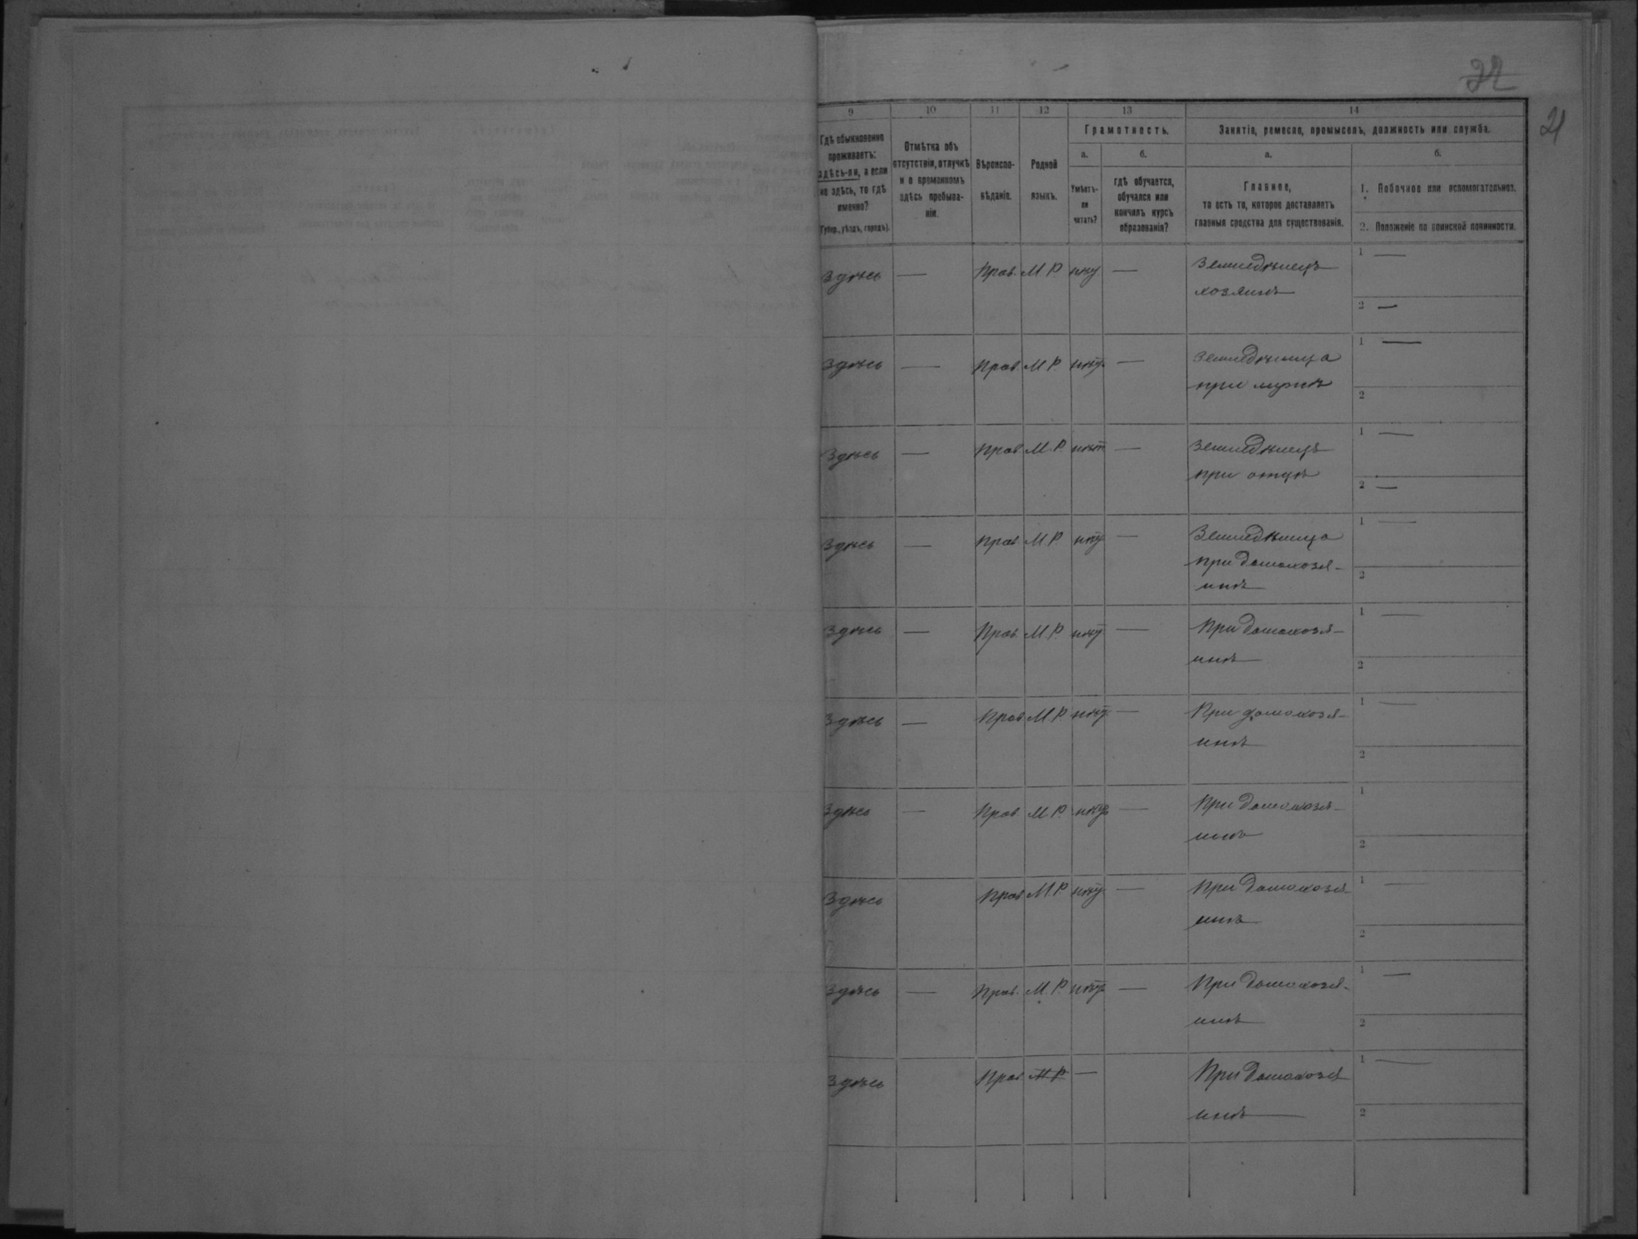 32
21
9 10 11 12 13 14
Гдѣ обыкновенно проживаетъ: здѣсь-ли, а если не здѣсь, то гдѣ именно? (Губер., уѣздъ, городъ).
Отмѣтка объ отсутствіи, отлучкѣ и о временномъ здѣсь пребываніи.
Вѣроиспо-
вѣданіе.
Родной
языкъ.
Грамотность.
а. б.
Умѣетъ-ли читать?
гдѣ обучается, обучался или кончилъ курсъ образованія?
Занятіе, ремесло, промыселъ, должность или служба.
а. б.
Главное,
то есть то, которое доставляетъ
главныя средства для существованія.
1. Побочное или вспомогательное.
2. Положеніе по воинской повинности.
Здѣсь — Прав М Р — Земледѣлецъ 1 —
хозяинъ 2 —
Здѣсь — Прав М Р — Земледѣлица 1 —
при мужѣ 2
Здѣсь — Прав М Р нѣт — Земледѣлецъ 1 —
при отцѣ 2 —
Здѣсь — Прав М Р — Земледѣлица 1 —
при домохозя-
инѣ 2
Здѣсь — Прав М Р — При домохозя- 1 —
инѣ 2
Здѣсь — Прав М Р — При домохозя- 1 —
инѣ 2
Здѣсь — Прав М Р — При домохозя- 1
инѣ 2
Здѣсь Прав М Р — При домохозя 1 —
инѣ 2
Здѣсь — Прав. М. Р. — При домохозя- 1 —
инѣ 2
Здѣсь Прав М Р — При домохозя 1 —
инѣ 2